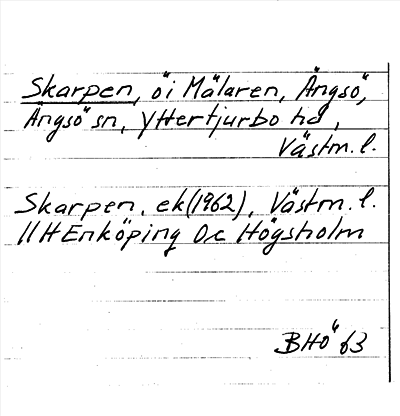 Skarpen, ö i Mälaren, Ängsö,
Ängsö sn, Yttertjurbo hd,
Västm. l.
Skarpen. ek (1962), Västm. l.
11H Enköping 0c Högsholm
BHö 63